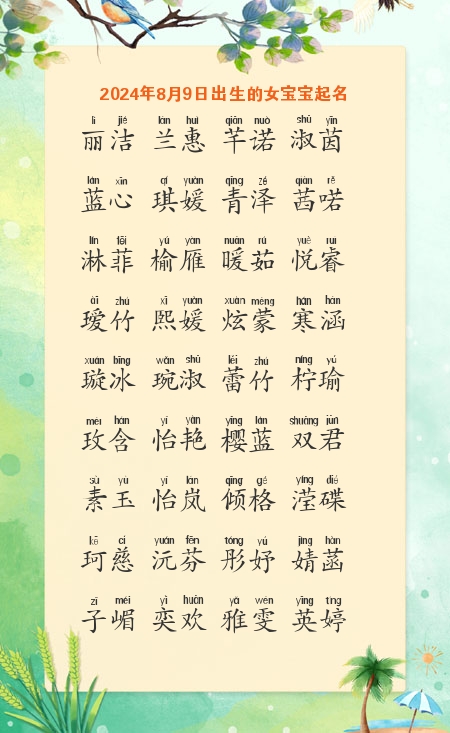 2024年8月9日出生的女宝宝起名
lì jié lán huì qiān nuò shū yīn
丽洁 兰惠 芊诺 淑茵
lán xīn qí yuàn qīng zé qiàn rě
蓝心 琪媛 青泽 茜喏
lín fēi yú yàn nuǎn rú yuè ruì
淋菲 榆雁 暖茹 悦睿
ài zhú xī yuàn xuàn méng hán hán
瑷竹 熙媛 炫蒙 寒涵
xuán bīng wǎn shū lěi zhú níng yú
璇冰 琬淑 蕾竹 柠瑜
méi hán yí yàn yīng lán shuāng jūn
玫含 怡艳 樱蓝 双君
sù yù yí lán qīng gé yíng dié
素玉 怡岚 倾格 滢碟
kē cí yuán fēn tóng yú jìng hàn
珂慈 沅芬 彤妤 婧菡
zǐ mèi yì huān yǎ wén yīng tíng
子媚 奕欢 雅雯 英婷